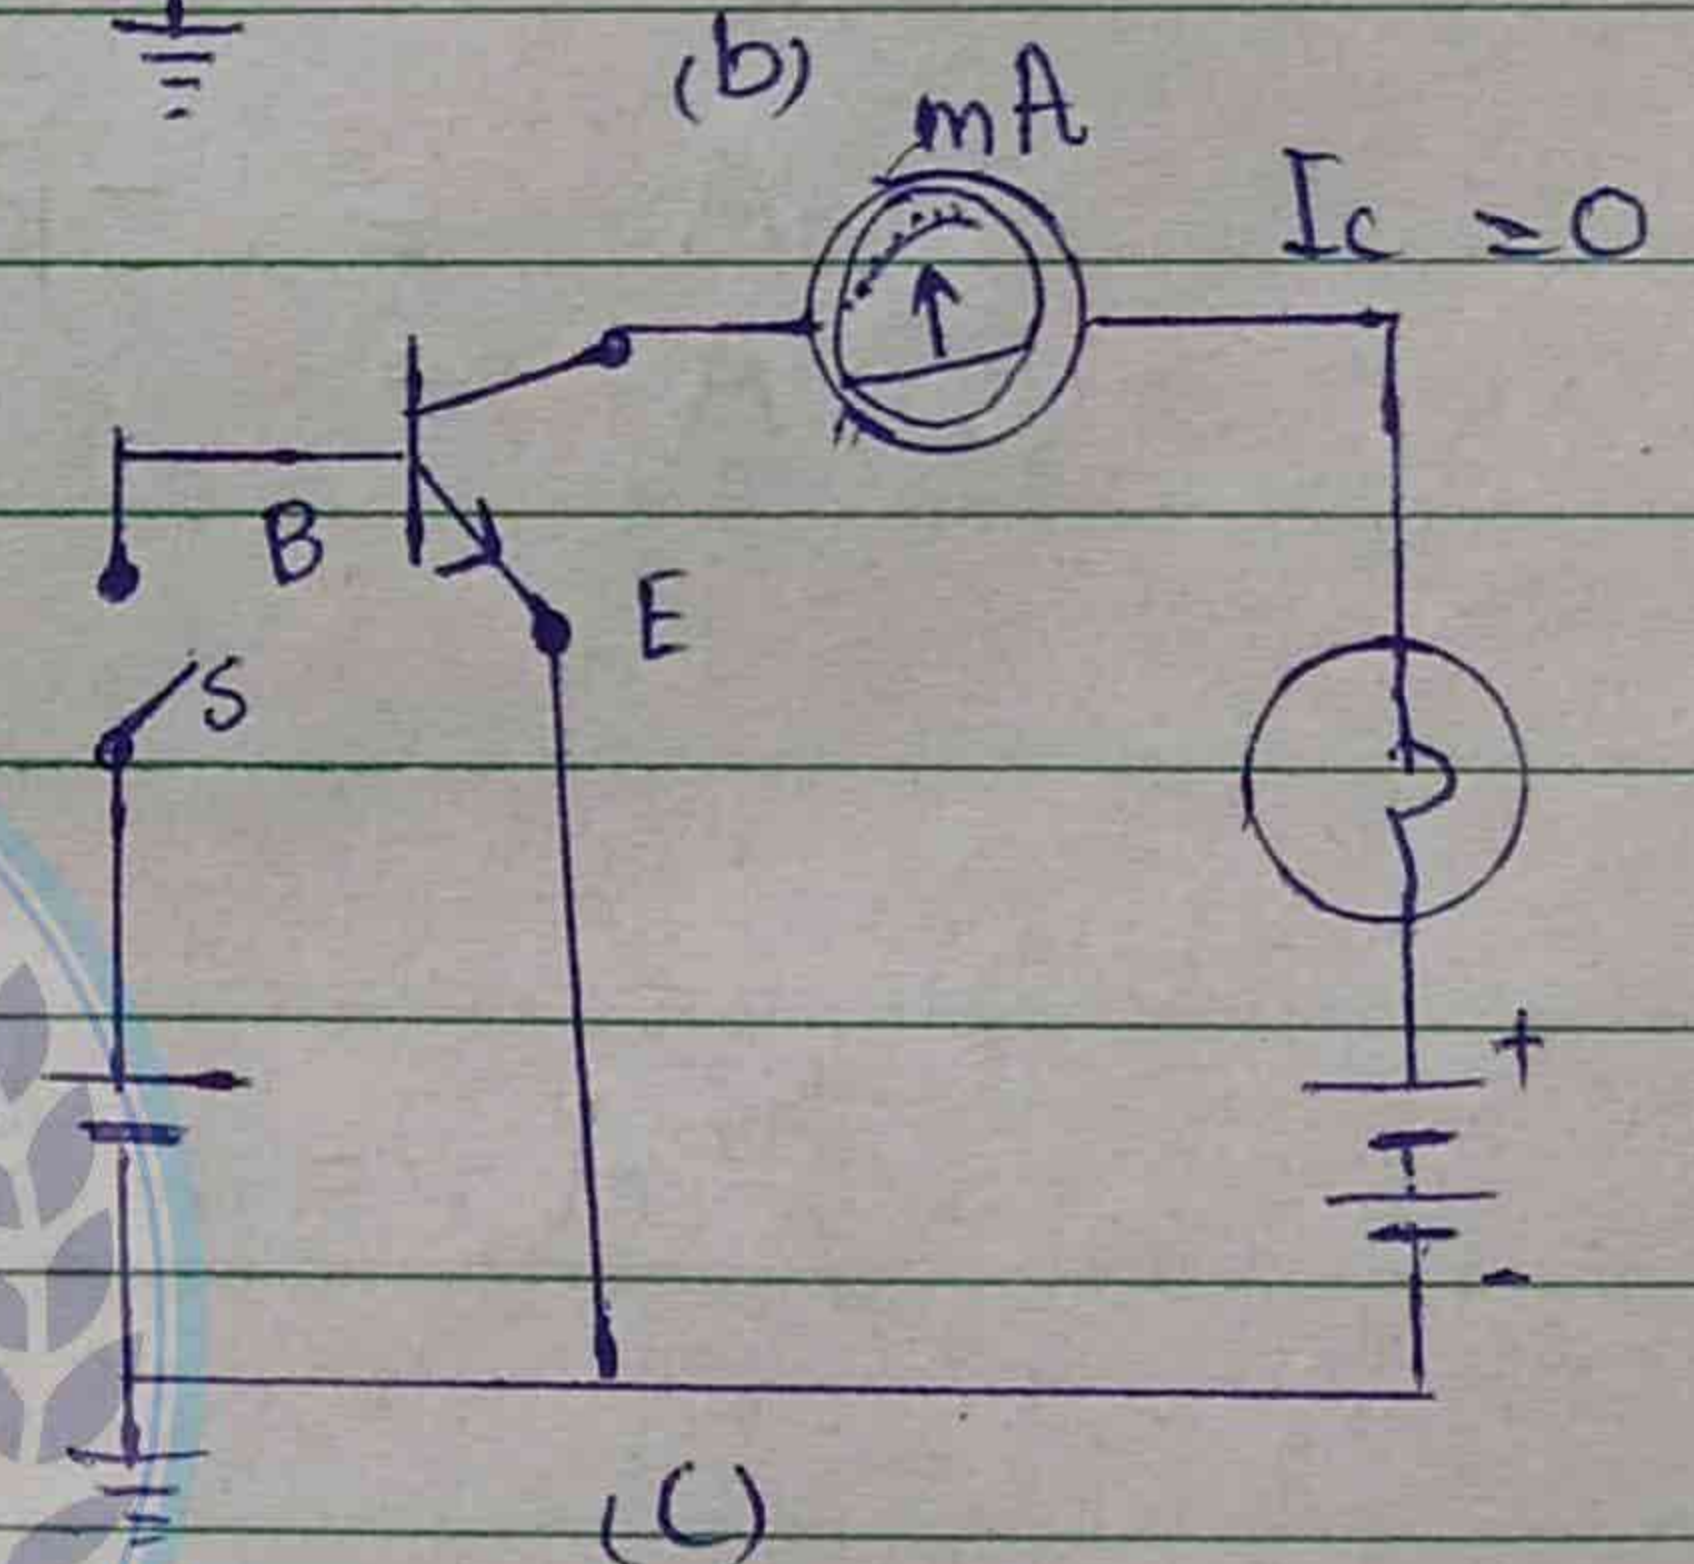 (b)
mA
Ic = 0
B
E
S
+
-
(C)